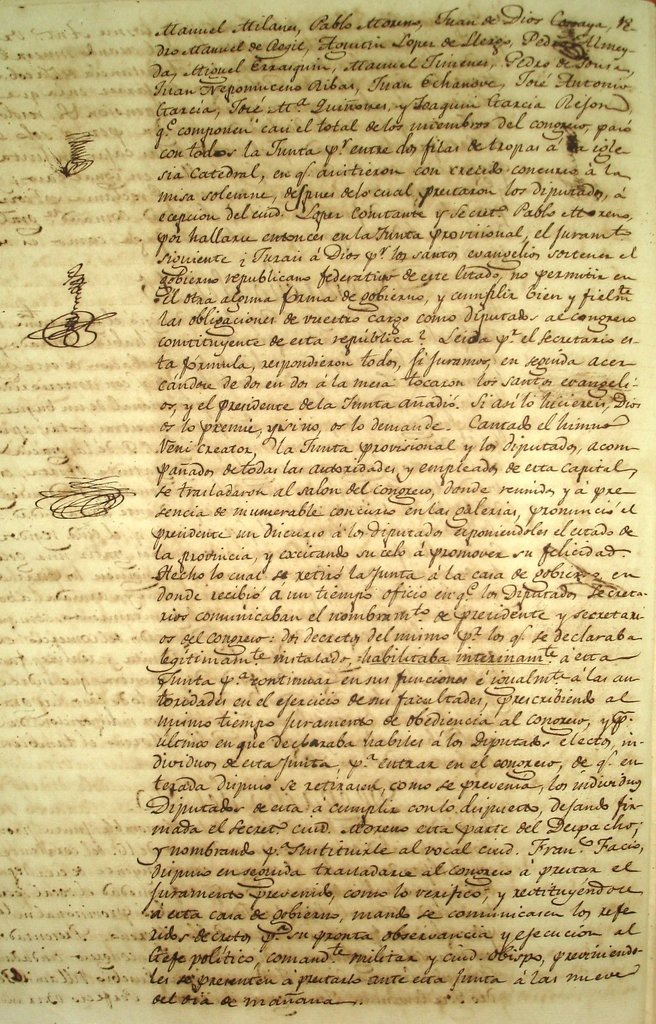 Manuel Milanes, Pablo Moreno, Juan de Dios Cosgaya, Pe
dro Manuel de Regil, Agustin Lopez de Llergo, Pedro Almey
da, Miguel Errasquin, Manuel Jimenes, Pedro de Sousa,
Juan Nepomuceno Ribas, Juan Echanove, José Antonio
García, José Mª Quiñones, y Joaquin Garcia Rejon
qᵉ componen casi el total de los miembros del congreso, pasó
con todos la Junta pʳ entre dos filas de tropas á la igle
sia Catedral, en qᵉ asistieron con crecido concurso á la
misa solemne, despues de lo cual prestaron los diputados, á
ecepcion del ciud. Lopez Constante y Secretº Pablo Moreno,
por hallarse entonces en la Junta provisional, el juramtº
siguiente ¿ Jurais á Dios pʳ los santos evangelios sostener el
gobierno republicano federativo de este Estado, no permitir en
él otra alguna forma de gobierno, y cumplir bien y fielmte
las obligaciones de vuestro cargo como diputados al congreso
constituyente de esta república? Leida pʳ el secretario es
ta fórmula, respondieron todos, sí juramos, en seguida acer
cándose de dos en dos á la mesa tocaron los santos evangeli
os, y el presidente de la Junta añadió. Si asi lo hicieren, Dios
os lo premie, y si no, os lo demande. Cantado el himno
Veni creator, la Junta provisional y los diputados, acom
pañados de todas las autoridades y empleados de esta capital,
se trasladaron al salon del congreso, donde reunidos y á pre
sencia de inumerable concurso en las galerias, pronunció el
presidente un discurso á los diputados esponiéndoles el estado de
la provincia, y excitando su celo á promover su felicidad.
Hecho lo cual se retiró la Junta á la casa de gobierno, en
donde recibió á un tiempo oficio en qᵉ los Diputados Secreta
rios comunicaban el nombramtº de presidente y secretari
os del congreso: dos decretos del mismo pʳ los qᵉ se declaraba
legítimamte instalado, habilitaba interinamte á esta
Junta pª continuar en sus funciones é igualmte á las au
toridades en el ejercicio de sus facultades, prescribiendo al
mismo tiempo juramento de obediencia al congreso, y pʳ
último en que declaraba habiles á los Diputados electos, in
dividuos de esta Junta, pª entrar en el congreso, de qᵉ en
terada dispuso se retirasen, como se prevenia, los individuos
Diputados de esta á cumplir con lo dispuesto, dejando fir
mada el Secretº ciud. Moreno esta parte del Despacho;
y nombrando pª sustituirle al vocal ciud. Franº Facio,
dispuso en seguida trasladarse al congreso á prestar el
juramento prevenido, como lo verificó; y restituyendose
á esta casa de gobierno, mandó se comunicasen los refe
ridos decretos pª su pronta observancia y ejecucion al
Gefe politico, comandte militar y ciud. obispo, previniendo
les se presenten á prestarlo ante esta Junta á las nueve
del dia de mañana.